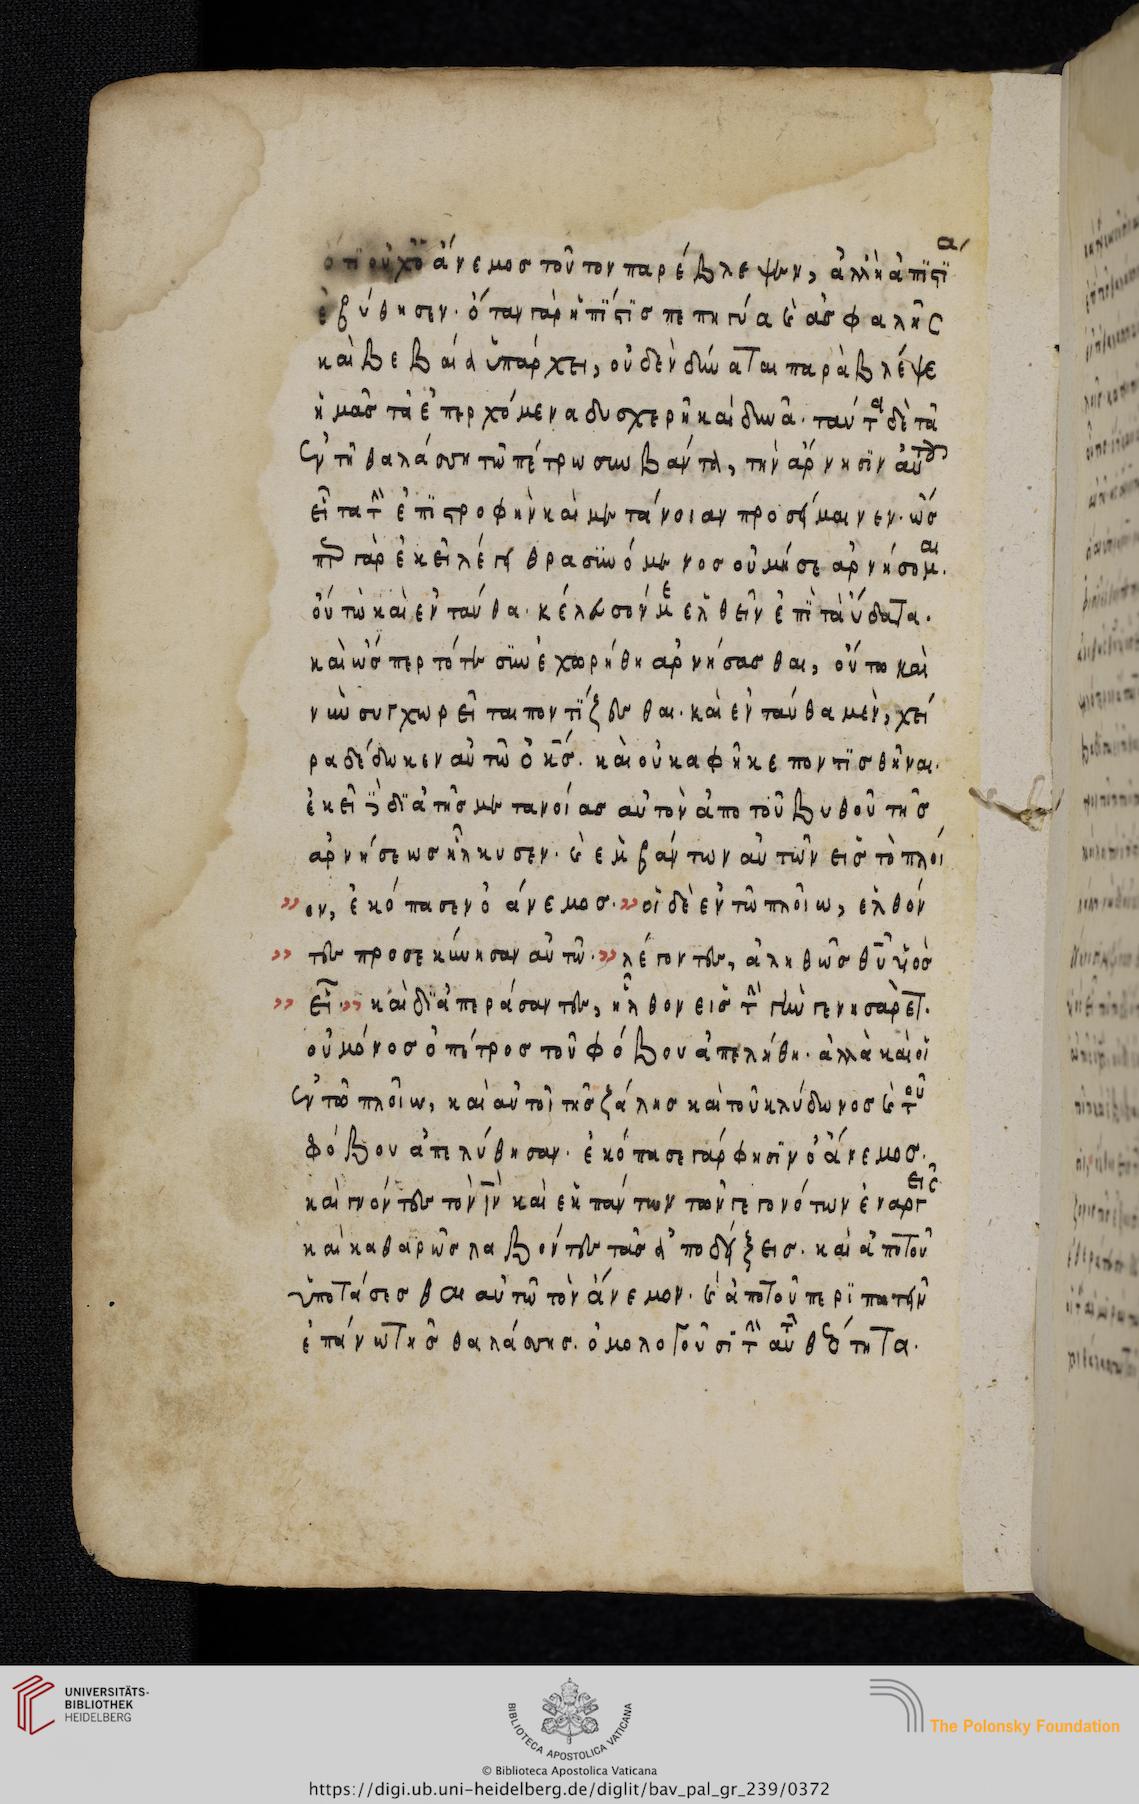 ὅτι οὐχ ὁ ἄνεμος τοῦτον παρέβλεψεν, ἀλλ' ἡ ἀπιστία
ἐβύθησεν· ὅταν γὰρ ἡ πίστις πεπηγύα καὶ ἀσφαλὴς
καὶ βεβαία ὑπάρχει, οὐδὲν δύναται παραβλέψε
ἡμᾶς τὰ ἐπερχόμενα δυσχερῆ καὶ δινά· ταύτα δὲ τὰ
ἐν τῆ θαλάσση τῶ πέτρω συμβάντα, τὴν ἄρνησιν αὐτοῦ
εἶτα τὴν ἐπιστροφὴν καὶ μετάνοιαν προσήμαινεν· ὥσ
περ γὰρ ἐκεῖ λέγει θρασυνόμενος οὐ μή σε ἀρνήσομαι·
οὕτω καὶ ἐνταύθα· κέλευσόν με ἐλθεῖν ἐπὶ τὰ ὕδατα·
καὶ ὥσπερ τότε συνεχωρήθη ἀρνήσασθαι, οὕτω καὶ
νῦν συγχωρεῖται ποντίζεσθαι· καὶ ἐνταύθα μὲν, χεί
ρα δέδωκεν αὐτῶ ὁ κς· καὶ οὐκ ἀφῆκε ποντισθῆναι·
ἐκεῖ δὲ διὰ τῆς μετανοίας αὐτὸν ἀπο τοῦ βυθοῦ τῆς
ἀρνήσεως εἵλκυσεν· καὶ ἐμβάντων αὐτῶν εἰς τὸ πλοῖ
ον, ἐκόπασεν ὁ ἄνεμος· οἱ δὲ ἐν τῶ πλοίω, ἐλθόν
τες προσεκύνησαν αὐτῶ· λέγοντες, ἀληθῶς θυ υἱὸς
εἶ· καὶ διαπεράσαντες, ἦλθον εἰς τὴν γῆν γεννησαρέτ·
οὐ μόνος ὁ πέτρος τοῦ φόβου ἀπελήθη· ἀλλὰ καὶ οἱ
ἐν τῶ πλοίω, καὶ αὐτοὶ τῆς ζάλης καὶ τοῦ κλύδωνος καὶ τοῦ
φόβου ἀπελύθησαν· ἐκόπασε γάρ φησιν ὁ ἄνεμος·
καὶ γνόντες τὸν ιν καὶ ἐκ πάντων τῶν γεγονότων ἐναργεῖς
καὶ καθαρῶς λαβόντες τὰς ἀποδείξεις· καὶ ἀπὸ τοῦ
ὑποτάσεσθαι αὐτῶ τὸν ἄνεμον· καὶ ἀπὸ τοῦ περιπατεῖν
ἐπάνω τῆς θαλάσσης· ὁμολογοῦσι τὴν αὐτοῦ θεότητα·
UNIVERSITÄTS-
BIBLIOTHEK
HEIDELBERG
BIBLIOTECA APOSTOLICA VATICANA
The Polonsky Foundation
© Biblioteca Apostolica Vaticana
https://digi.ub.uni-heidelberg.de/diglit/bav_pal_gr_239/0372